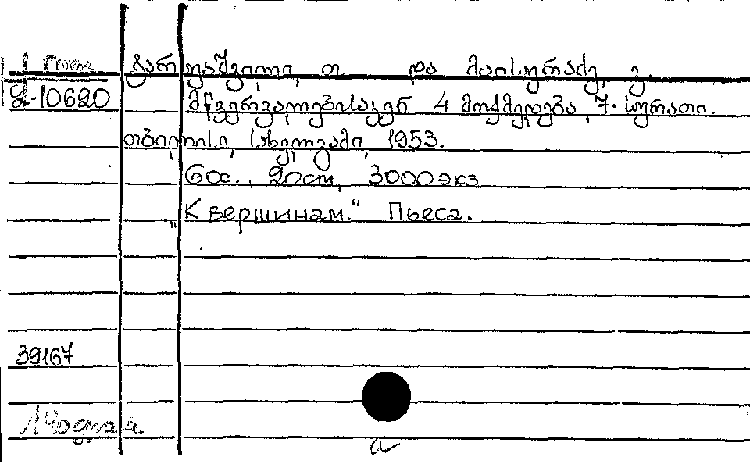 და მაისურაძე, ვ.
-10620 მწვერვალებისაკენ 4 მოქმედება, 7. სურათი.
თბილისი, სახელგამი, 1953.
60с., 20cm, 3000экз
„К вершинам." Пьеса.
39167